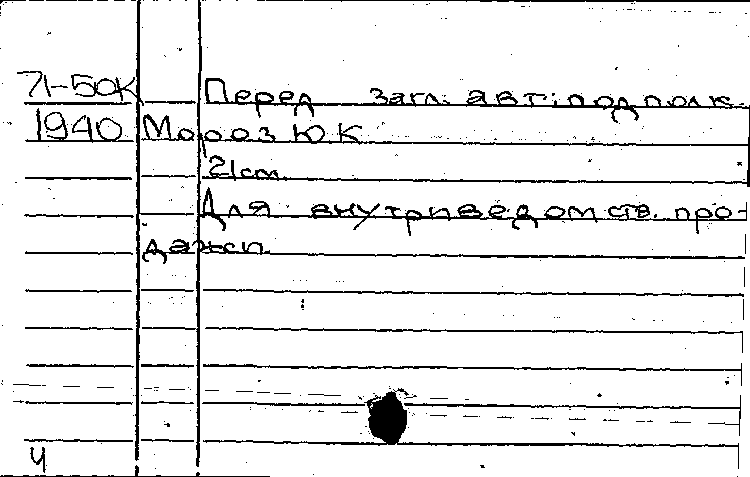 71-50К Перед загл. авт: подполк.
1940 Мороз Ю К
21 cm.
Для внутриведомств. про-
дажи
4